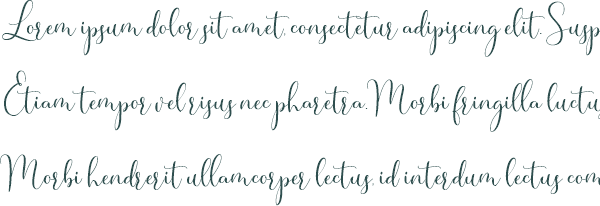 Lorem ipsum dolor sit amet, consectetur adipiscing elit. Susp
Etiam tempor vel risus nec pharetra. Morbi fringilla luctu
Morbi hendrerit ullamcorper lectus, id interdum lectus com